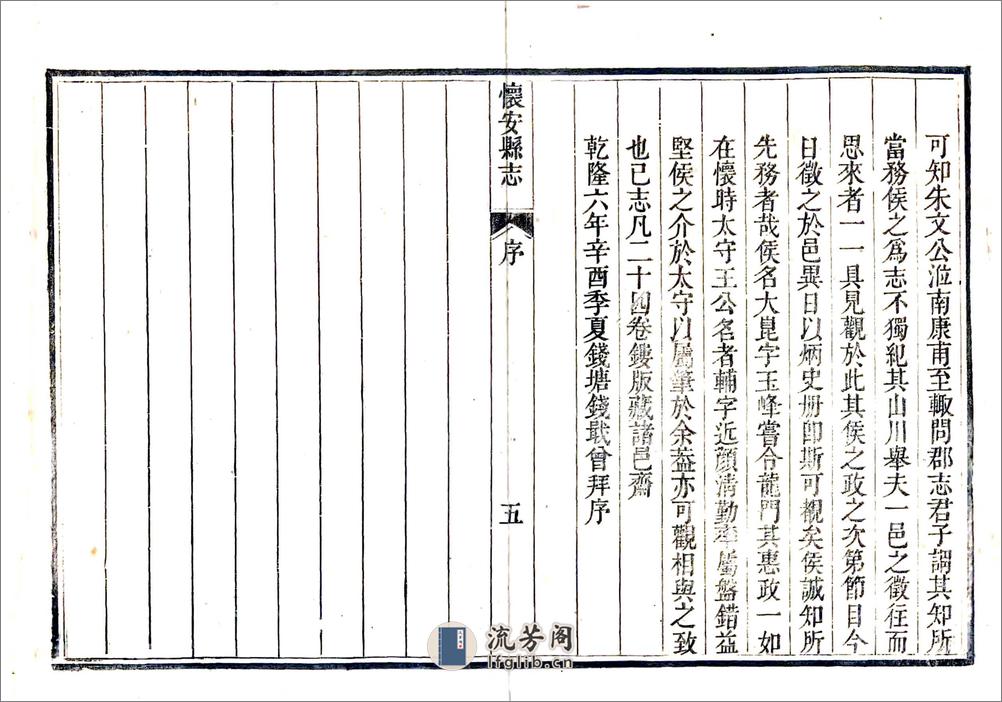 可知朱文公涖南康甫至輙問郡志君子謂其知所
當務侯之爲志不獨紀其山川舉夫一邑之徵往而
思來者一一具見觀於此其侯之政之次第節目今
日徵之於邑異日以炳史册卽斯可覩矣侯誠知所
先務者哉侯名大崑字玉峰嘗令龍門其惠政一如
在懷時太守王公名者輔字近顔淸勤率屬盤錯益
堅侯之介於太守以屬筆於余葢亦可觀相與之致
也已志凡二十四卷鏤版藏諸邑齋
乾隆六年辛酉季夏錢塘錢戢曾拜序
懷安縣志
序
五
流芳阁
lfglib.cn